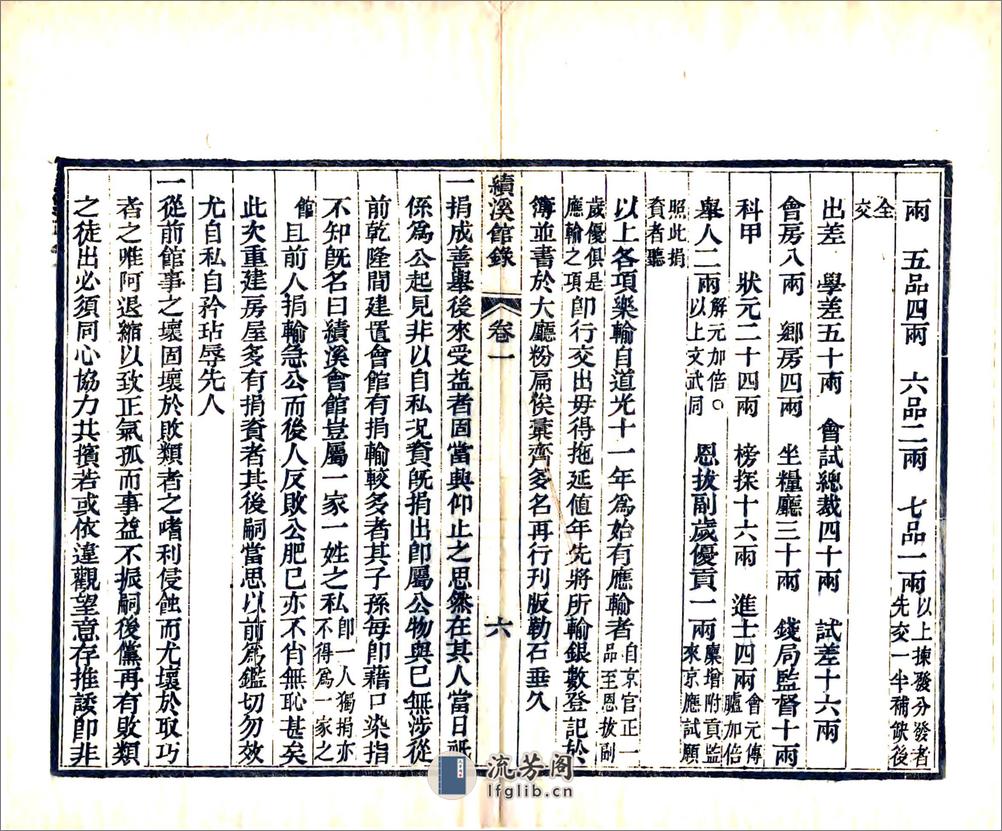 兩　五品四兩　六品二兩　七品一兩以上揀發分發者先交一半補缺後
全交
出差　學差五十兩　會試總裁四十兩　試差十六兩
會房八兩　鄉房四兩　坐糧廳三十兩　錢局監督十兩
科甲　狀元二十四兩　榜探十六兩　進士四兩會元傳臚加倍
舉人二兩解元加倍。以上文武同　恩拔副歲優貢一兩廩增附貢監來京應試願
照此捐資者聽
以上各項樂輸自道光十一年爲始有應輸者自京官正一品至恩拔副
歲優俱是應輸之項卽行交出毋得拖延值年先將所輸銀數登記於
簿並書於大廳粉扁俟彙齊多名再行刊版勒石垂久
績溪館錄　卷一　六
一捐成善舉後來受益者固當興仰止之思然在其人當日祇
係爲公起見非以自私況資旣捐出卽屬公物與已無涉從
前乾隆間建置會館有捐輸較多者其子孫每卽藉口染指
不知旣名曰績溪會館豈屬一家一姓之私卽一人獨捐亦不得爲一家之
館且前人捐輸急公而後人反敗公肥已亦不肖無恥甚矣
此次重建房屋多有捐資者其後嗣當思以前爲鑑切勿效
尤自私自矜玷辱先人
一從前館事之壞固壞於敗類者之嗜利侵蝕而尤壞於取巧
者之唯阿退縮以致正氣孤而事益不振嗣後黨再有敗類
之徒出必須同心協力共擯若或依違觀望意存推諉卽非
流芳阁
lfglib.cn